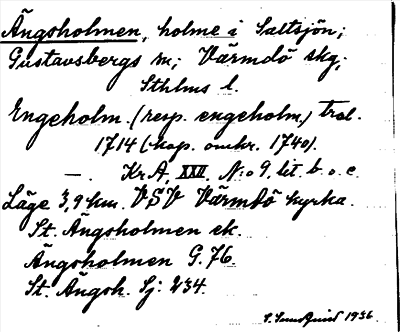 Ängsholmen, holme i Saltsjön;
Gustavsbergs sn; Värmdö skg;
Sthlms l.
Engeholm. (resp. engeholm,) Trol.
1714 (kop. omkr. 1740).
—. Kr.A. XXII. N:o 9. lit. b. o. c.
Läge 3,9 km. VSV Värmdö kyrka.
St. Ängsholmen ek.
Ängsholmen G. 76.
St. Ängsh. Sj: 234.
1936.